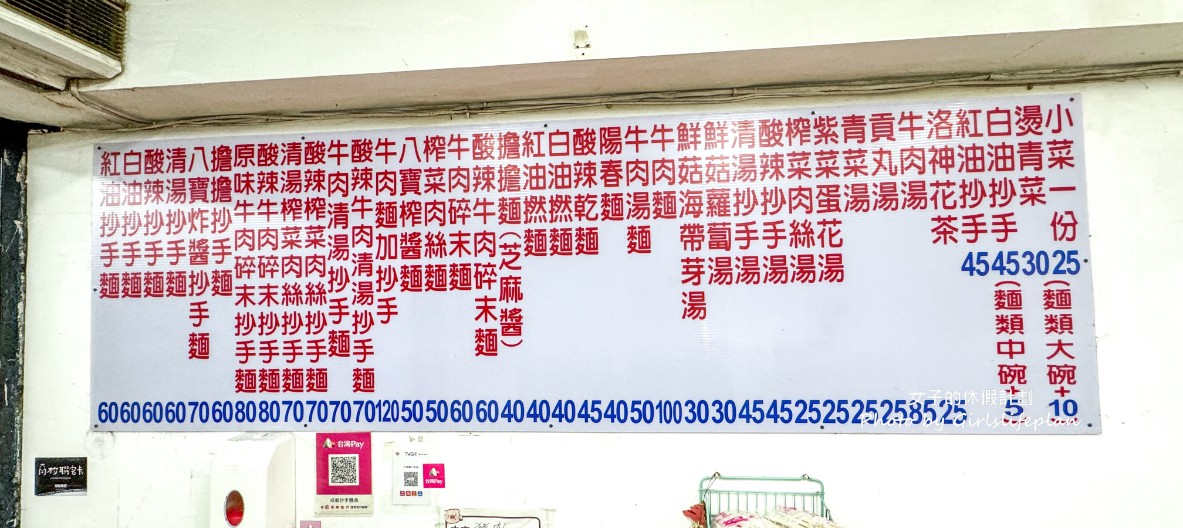 小菜一份 25
(麵類大碗+10
燙青菜 30
白油抄手 45
(麵類中碗+5
紅油抄手 45
洛神花茶 25
牛肉湯 85
貢丸湯 25
青菜湯 25
紫菜蛋花湯 25
榨菜肉絲湯 25
酸辣抄手湯 45
清湯抄手湯 45
鮮菇蘿蔔湯 30
鮮菇海帶芽湯 30
牛肉麵 100
牛肉湯麵 50
陽春麵 40
酸辣乾麵 45
白油撚麵 40
紅油撚麵 40
擔擔麵(芝麻醬) 40
酸辣牛肉碎末麵 60
牛肉碎末麵 60
榨菜肉絲麵 50
八寶榨醬麵 50
牛肉麵加抄手 120
酸辣牛肉清湯抄手麵 70
牛肉清湯抄手麵 70
酸辣榨菜肉絲抄手麵 70
清湯榨菜肉絲抄手麵 70
酸辣牛肉碎末抄手麵 80
原味牛肉碎末抄手麵 80
擔擔抄手麵 60
八寶炸醬抄手麵 70
清湯抄手麵 60
酸辣抄手麵 60
白油抄手麵 60
紅油抄手麵 60
女子的休假計劃
Photo by Girlslifeplan
台灣Pay
台灣Pay